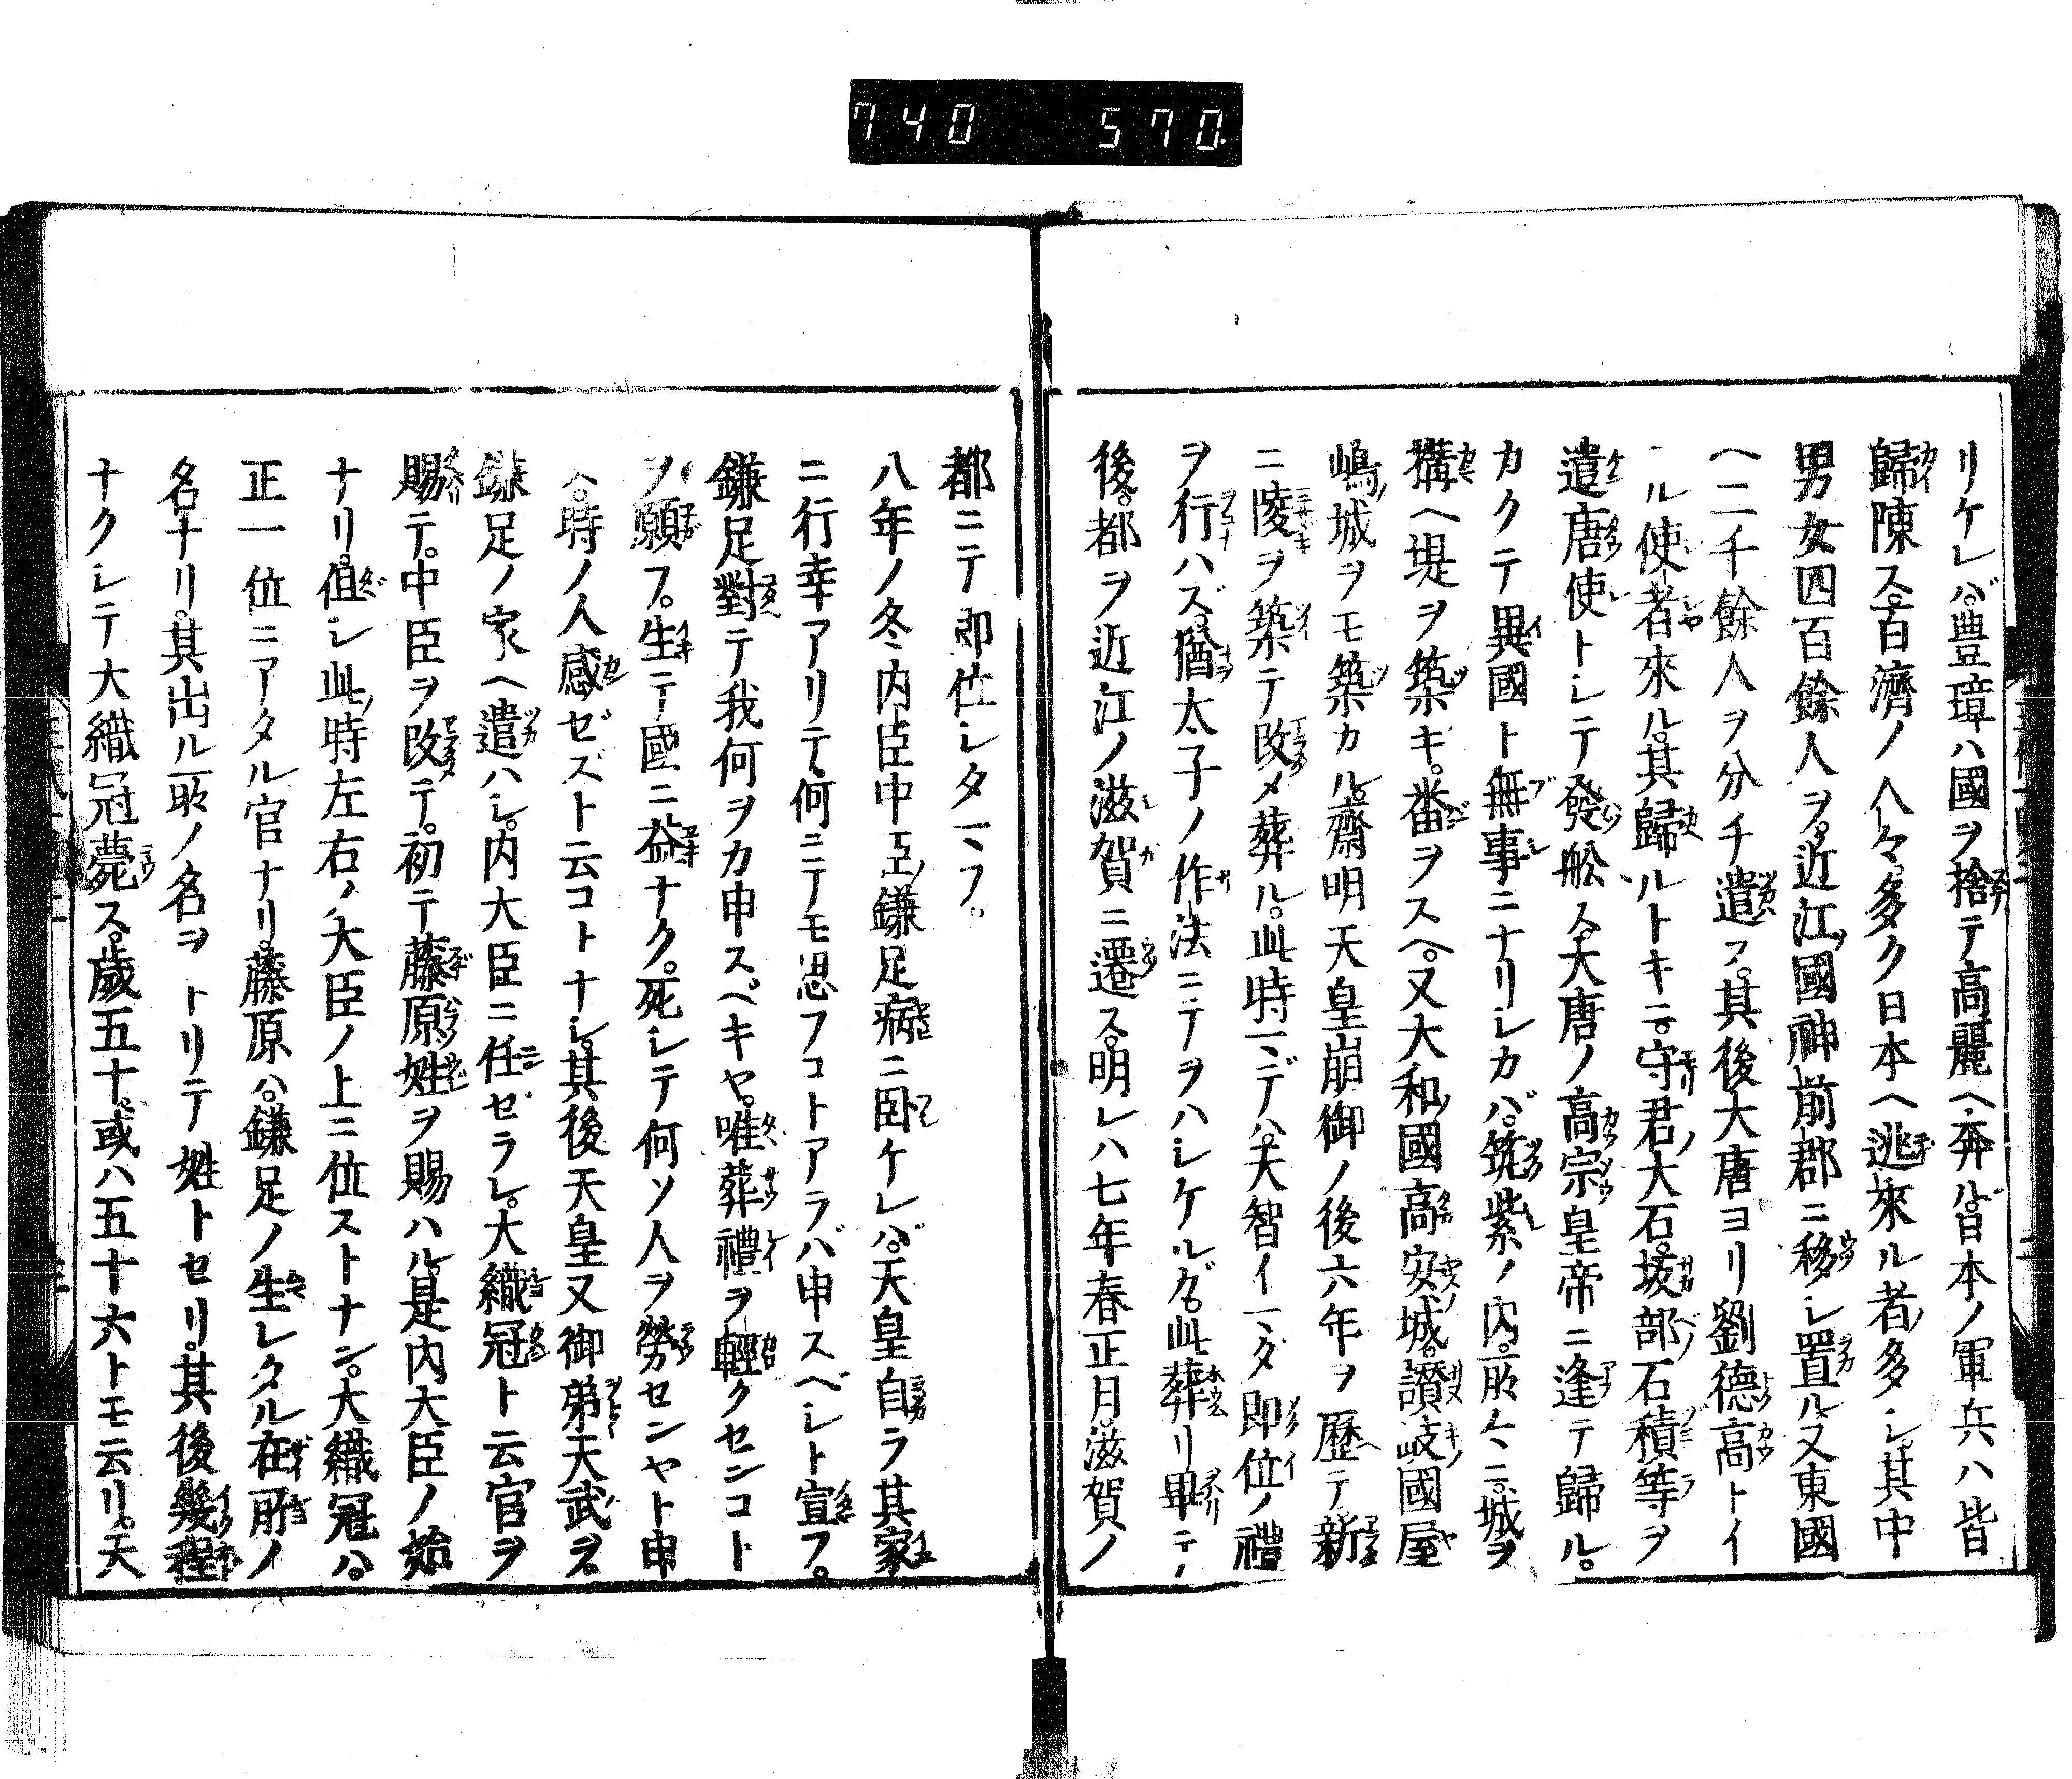 740 570
リケレバ。豊璋ハ國ヲ捨テ高麗ヘ奔ル。日本ノ軍兵ハ皆
歸陳ス。百濟ノ人々多ク日本ヘ逃來ル者多シ。其中
男女四百餘人ヲ。近江國神前郡ニ移シ置ル。又東國
ヘ二千餘人ヲ分チ遣フ。其後大唐ヨリ劉德高トイ
ル使者來ル。其歸ルトキニ。守君ノ大石。坂部ノ石積等ヲ
遣唐使トシテ發舩ス。大唐ノ高宗皇帝ニ逢テ歸ル。
カクテ異國ト無事ニナリシカバ。筑紫ノ内。所々ニ。城ヲ
搆ヘ堤ヲ築キ。番ヲスヘ。又大和國高安城。讃岐國屋
嶋城ヲモ築カル。齋明天皇崩御ノ後六年ヲ歷テ新
ニ陵ヲ築テ改メ葬ル。此時マデハ。天智イマダ即位ノ禮
ヲ行ハズ。猶太子ノ作法ニテヲハシケルガ。此葬リ畢テノ
後。都ヲ近江ノ滋賀ニ遷ス。明レハ七年春正月。滋賀ノ
都ニテ即位シタマフ。
八年ノ冬內臣中臣鎌足病ニ臥ケレバ。天皇自ラ其家
ニ行幸アリテ。何ニテモ思フコトアラバ申スベシト宣フ。
鎌足對テ我何ヲカ申スベキヤ。唯葬禮ヲ輕クセンコト
ヲ願フ。生テ國ニ益ナク。死シテ何ソ人ヲ勞センヤト申
ス。時ノ人感ゼズト云コトナシ。其後天皇又御弟天武ヲ。
鎌足ノ家ヘ遣ハシ。内大臣ニ任ゼラレ。大織冠ト云官ヲ
賜テ。中臣ヲ改テ。初テ藤原姓ヲ賜ハル。是内大臣ノ始
ナリ。但シ此時左右ノ大臣ノ上ニ位ストナン。大織冠ハ。
正一位ニアタル官ナリ。藤原ハ。鎌足ノ生レタル在所ノ
名ナリ。其出ル所ノ名ヲトリテ姓トセリ。其後幾程
ナクシテ大織冠薨ス。歳五十。或ハ五十六トモ云リ。天